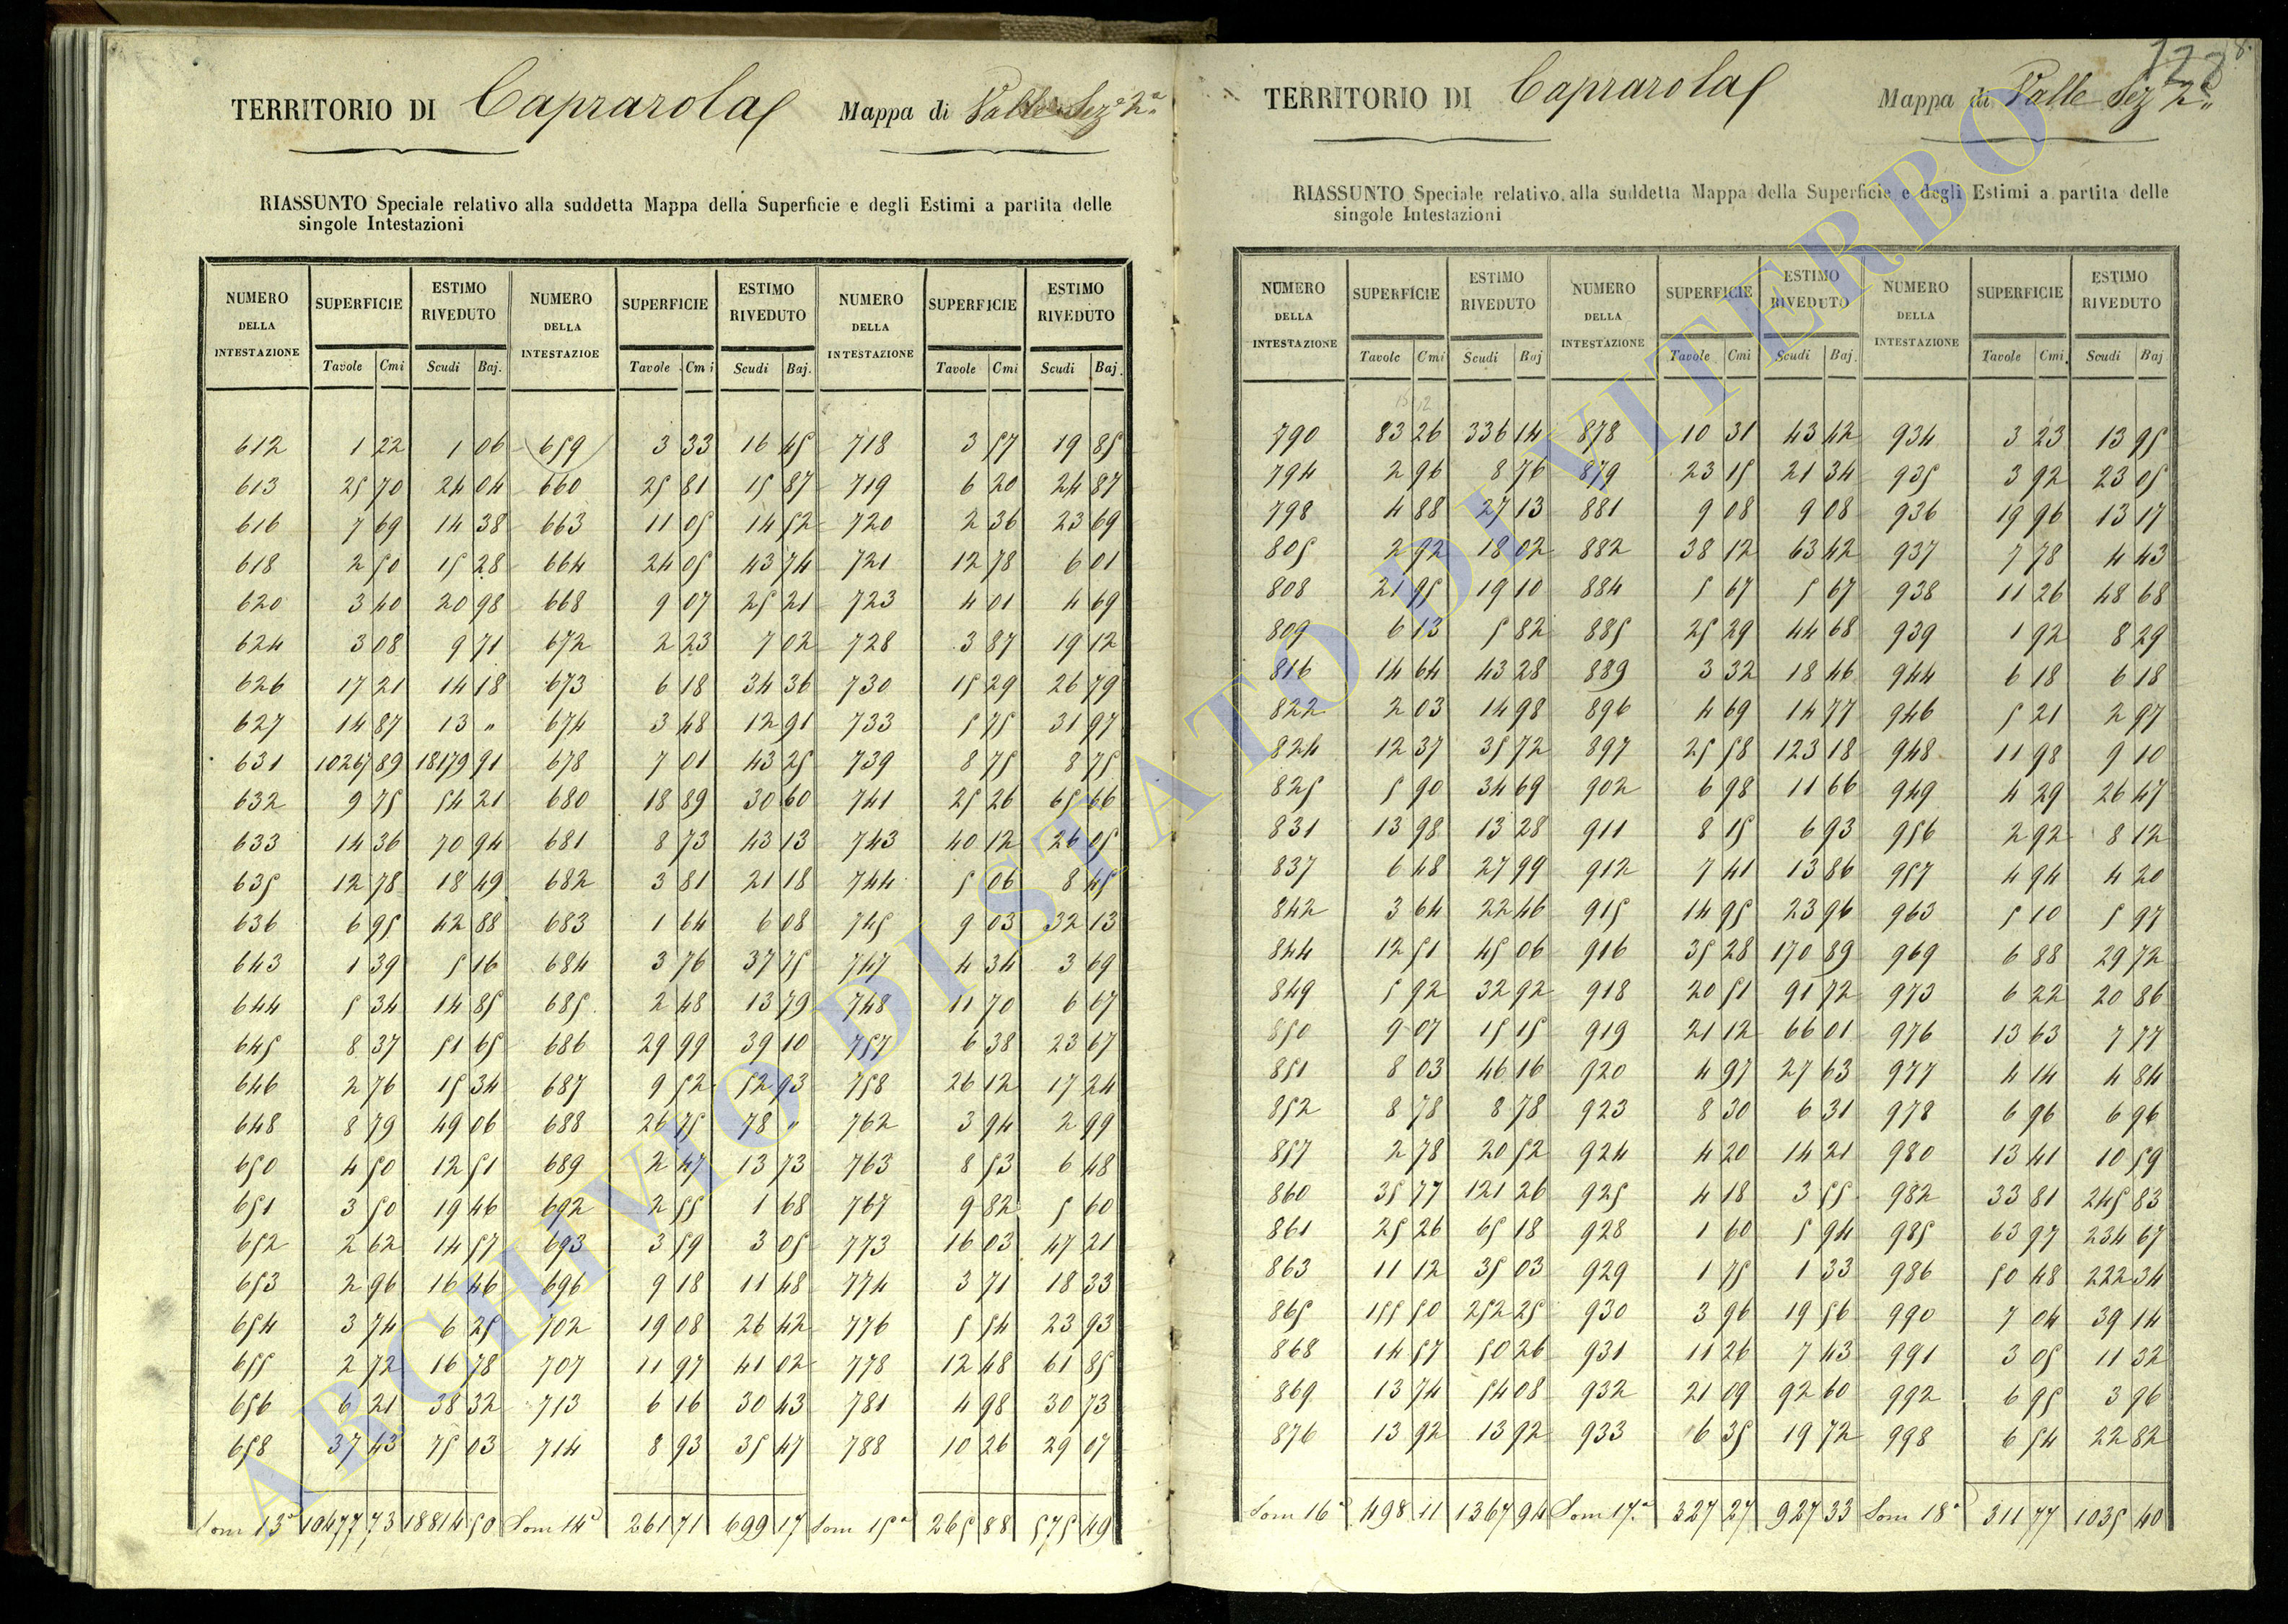 TERRITORIO DI Caprarola Mappa di Valle Sez.e 2.a
RIASSUNTO Speciale relativo alla suddetta Mappa della Superficie e degli Estimi a partita delle
singole Intestazioni
NUMERO DELLA INTESTAZIONE SUPERFICIE ESTIMO RIVEDUTO NUMERO DELLA INTESTAZIOE SUPERFICIE ESTIMO RIVEDUTO NUMERO DELLA INTESTAZIONE SUPERFICIE ESTIMO RIVEDUTO
Tavole Cmi Scudi Baj. Tavole Cmi Scudi Baj. Tavole Cmi Scudi Baj.
612 1 22 1 06 659 3 33 16 45 718 3 57 19 85
613 25 70 24 04 660 25 81 15 87 719 6 20 24 87
616 7 69 14 38 663 11 05 14 52 720 2 36 23 69
618 2 50 15 28 664 24 05 43 74 721 12 78 6 01
620 3 40 20 98 668 9 07 25 21 723 4 01 4 69
624 3 08 9 71 672 2 23 7 02 728 3 87 19 12
626 17 21 14 18 673 6 18 34 36 730 15 29 26 79
627 14 87 13 " 674 3 48 12 91 733 5 75 31 97
631 10267 89 18179 91 678 7 01 43 25 739 8 75 8 75
632 9 75 54 21 680 18 89 30 60 741 25 26 65 66
633 14 36 70 94 681 8 73 43 13 743 40 12 26 05
635 12 78 18 49 682 3 81 21 18 744 5 06 8 45
636 6 95 42 88 683 1 64 6 08 745 9 03 32 13
643 1 39 5 16 684 3 76 37 75 747 4 34 3 69
644 5 34 14 85 685 2 48 13 79 748 11 70 6 67
645 8 37 51 65 686 29 99 39 10 757 6 38 23 67
646 2 76 15 34 687 9 52 52 93 758 26 12 17 24
648 8 79 49 06 688 26 75 78 " 762 3 94 2 99
650 4 50 12 51 689 2 47 13 73 763 8 53 6 48
651 3 50 19 46 692 2 55 1 68 767 9 82 5 60
652 2 62 14 57 693 3 59 3 05 773 16 03 47 21
653 2 96 16 46 696 9 18 11 48 774 3 71 18 33
654 3 74 6 25 702 19 08 26 42 776 5 54 23 93
655 2 72 16 78 707 11 97 41 02 778 12 48 61 85
656 6 21 38 32 713 6 16 30 43 781 4 98 30 73
658 37 43 75 03 714 8 93 35 47 788 10 26 29 07
Som 13a 10477 73 18814 50 Som 14a 261 71 699 17 Som 15a 265 88 575 49
128
TERRITORIO DI Caprarola Mappa di Valle Sez 2.a
RIASSUNTO Speciale relativo alla suddetta Mappa della Superficie e degli Estimi a partita delle
singole Intestazioni
NUMERO DELLA INTESTAZIONE SUPERFICIE ESTIMO RIVEDUTO NUMERO DELLA INTESTAZIONE SUPERFICIE ESTIMO RIVEDUTO NUMERO DELLA INTESTAZIONE SUPERFICIE ESTIMO RIVEDUTO
Tavole Cmi Scudi Baj Tavole Cmi Scudi Baj. Tavole Cmi. Scudi Baj
790 83 26 336 14 878 10 31 43 42 934 3 23 13 95
794 2 96 8 76 879 23 15 21 34 935 3 92 23 05
798 4 88 27 13 881 9 08 9 08 936 19 96 13 17
805 2 92 18 02 882 38 12 63 42 937 7 78 4 43
808 21 95 19 10 884 5 67 5 67 938 11 26 48 68
809 6 13 5 82 885 25 29 44 68 939 1 92 8 29
816 14 64 43 28 889 3 32 18 46 944 6 18 6 18
822 2 03 14 98 896 4 69 14 77 946 5 21 2 97
824 12 37 35 72 897 25 58 123 18 948 11 98 9 10
825 5 90 34 69 902 6 98 11 66 949 4 29 26 47
831 13 98 13 28 911 8 15 6 93 956 2 92 8 12
837 6 48 27 99 912 7 41 13 86 957 4 94 4 20
842 3 64 22 46 915 14 95 23 96 963 5 10 5 97
844 12 51 45 06 916 35 28 170 89 969 6 88 29 72
849 5 92 32 92 918 20 51 91 72 973 6 22 20 86
850 9 07 15 15 919 21 12 66 01 976 13 63 7 77
851 8 03 46 16 920 4 97 27 63 977 4 14 4 84
852 8 78 8 78 923 8 30 6 31 978 6 96 6 96
857 2 78 20 52 924 4 20 14 21 980 13 41 10 59
860 35 77 121 26 925 4 18 3 55 982 33 81 245 83
861 25 26 65 18 928 1 60 5 94 985 63 97 234 67
863 11 12 35 03 929 1 75 1 33 986 50 48 222 34
865 155 50 252 25 930 3 96 19 56 990 7 04 39 14
868 14 57 50 26 931 11 26 7 43 991 3 05 11 32
869 13 74 54 08 932 21 09 92 60 992 6 95 3 96
876 13 92 13 92 933 6 35 19 72 998 6 54 22 82
Som 16a 498 11 1367 94 Som 17.a 327 27 927 33 Som 18a 311 77 1035 40
ARCHIVIO DI STATO DI VITERBO